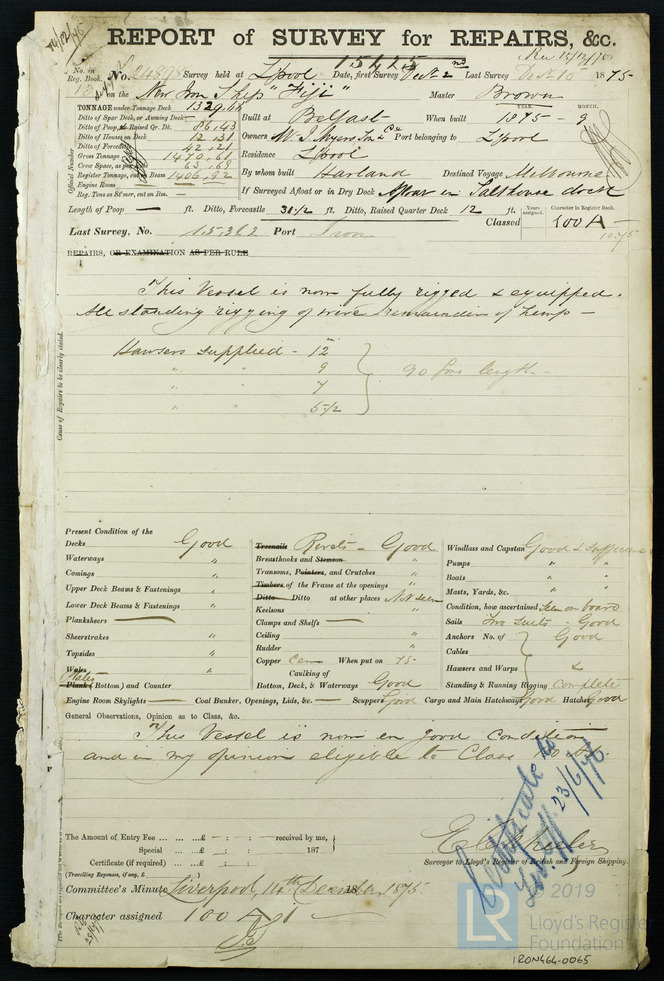 REPORT of SURVEY for REPAIRS, &c.
15425
Rec 15/12/75
No. in Reg. Book.
No. 24898 Survey held at L'pool Date, first Survey Decr 2nd Last Survey Decr 10 1875
on the New Iron Ship "Fiji" Master Brown
TONNAGE under Tonnage Deck 1329.66
Ditto of Spar Deck, or Awning Deck
Ditto of Poop, or Raised Qr. Dk. 86.43
Ditto of House on Deck 12.31
Ditto of Forecastle 42.21
Gross Tonnage 1470.61
Crew Space, as per 63.69
Register Tonnage, cut on Beam 1406.92
Engine Room —
Reg. Tons as St'mer, cut on Bm. —
Official Number
Built at Belfast When built YEAR. 1875 MONTH. 9
Owners W. J. Myers Son & Co Port belonging to L'pool
Residence L'pool
By whom built Harland Destined Voyage Melbourne
If Surveyed Afloat or in Dry Dock Afloat in Salthouse dock
Length of Poop — ft. Ditto, Forecastle 31 1/2 ft. Ditto, Raised Quarter Deck 12 ft.
Years assigned. Character in Register Book.
Classed 100 A
10.75
Last Survey, No. 15,362 Port Iron
REPAIRS, OR EXAMINATION AS PER RULE
This Vessel is now fully rigged & equipped.
All standing rigging of wire remainder of hemp —
Hawsers supplied - 12"
" " 9
" " 7
" " 5 1/2
90 fms length -
Cause of Repairs to be clearly stated.
Present Condition of the
Decks Good
Waterways "
Comings "
Upper Deck Beams & Fastenings "
Lower Deck Beams & Fastenings "
Planksheers —
Sheerstrakes "
Topsides "
Wales "
Plates
Plank (Bottom) and Counter
Treenails Rivets - Good
Breasthooks and Stemson "
Transoms, Pointers, and Crutches "
Timbers of the Frame at the openings "
Ditto Ditto at other places Not seen
Keelsons "
Clamps and Shelfs —
Ceiling "
Rudder "
Copper Cem When put on 75
Caulking of
Bottom, Deck, & Waterways Good
Windlass and Capstan Good & sufficient
Pumps " "
Boats " "
Masts, Yards, &c. " "
Condition, how ascertained Seen on board
Sails Two suits - Good
Anchors No. of Good
Cables
Hawsers and Warps &
Standing & Running Rigging complete
Engine Room Skylights — Coal Bunker, Openings, Lids, &c. — Scuppers Good Cargo and Main Hatchways Good Hatches Good
General Observations, Opinion as to Class, &c.
This Vessel is now in good condition
and in my opinion eligible to Class 100 A.
Certificate
23/6/76
The Amount of Entry Fee ... ... ...£ : : received by me,
Special ... ...£ : : 187
Certificate (if required) ... ...£ : :
(Travelling Expenses, if any, £ )
Surveyor to Lloyd's Register of British and Foreign Shipping.
Committee's Minute Liverpool, 14th December, 1875.
Character assigned 100 A 1
LR
2019
Lloyd's Register
Foundation
IRON464-0065